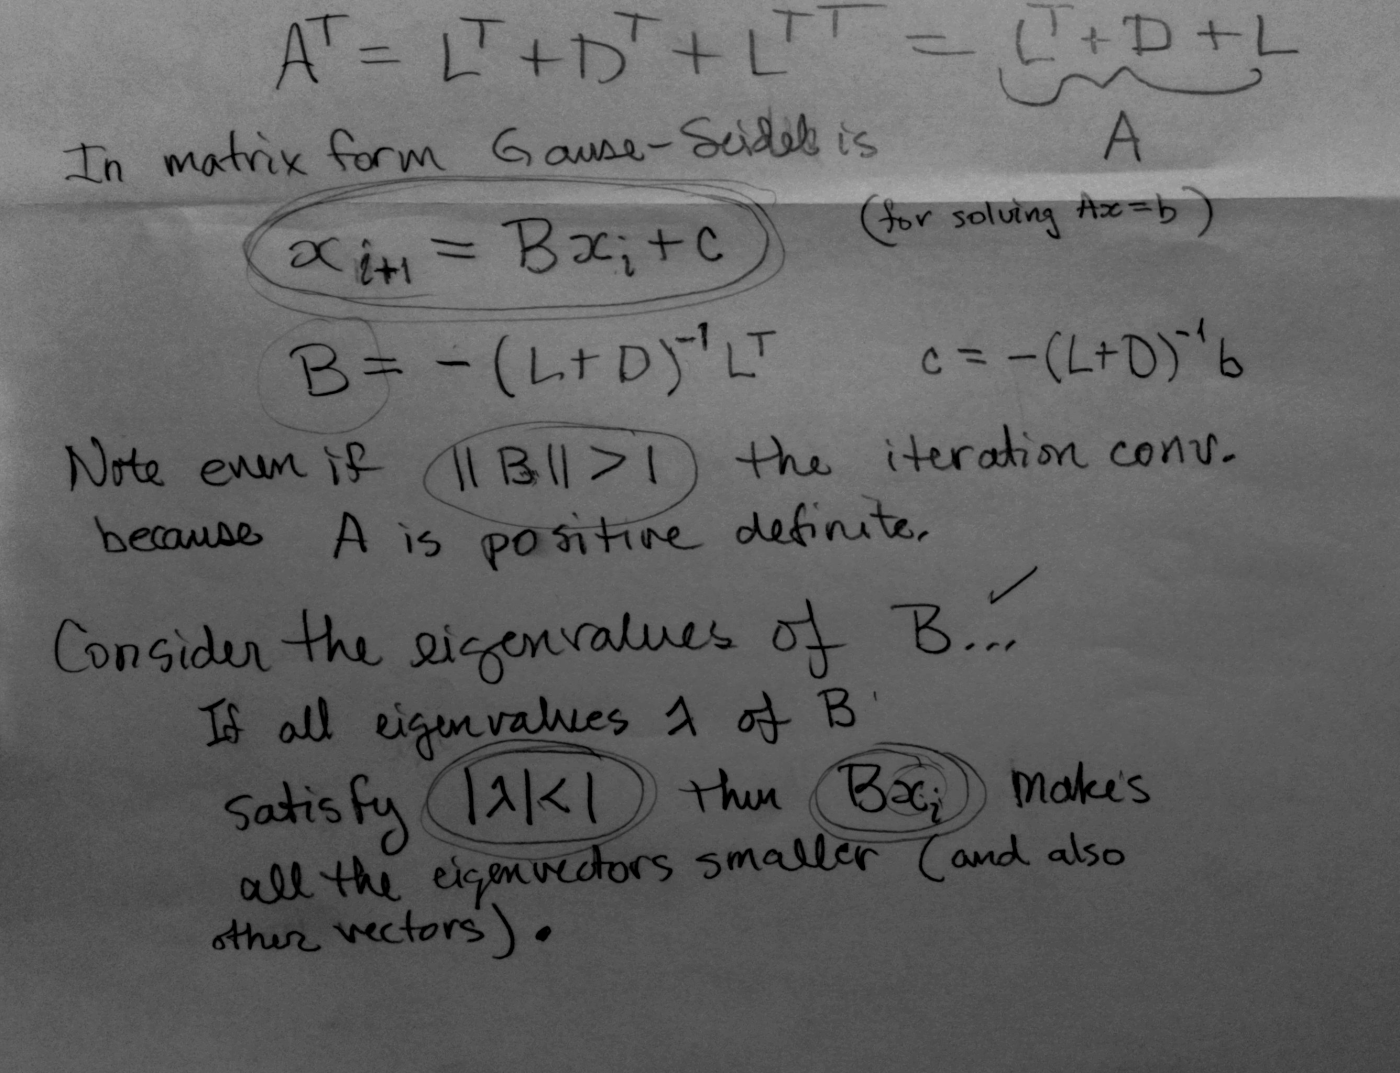 Aᵀ = Lᵀ + Dᵀ + Lᵀᵀ = Lᵀ + D + L
A
In matrix form Gause-Seidel is
(for solving Ax=b)
xᵢ₊₁ = Bxᵢ + c
B = -(L+D)⁻¹Lᵀ c = -(L+D)⁻¹b
Note even if ||B|| > 1 the iteration conv.
because A is positive definite.
Consider the eigenvalues of B... ✓
If all eigenvalues λ of B
satisfy |λ|<1 then Bxᵢ makes
all the eigenvectors smaller (and also
other vectors).